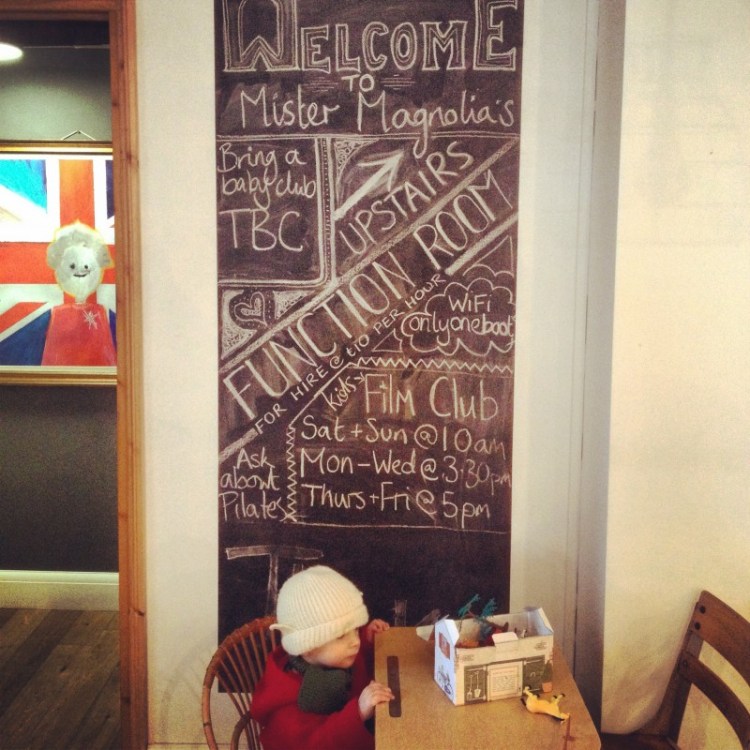 WELCOME
TO
Mister Magnolia's
Bring a
baby club
TBC
UPSTAIRS
FUNCTION ROOM
FOR HIRE @ £10 PER HOUR
WiFi
onlyoneboot
Kids
Film Club
Sat + Sun @ 10am
Mon - Wed @ 3.30pm
Thurs + Fri @ 5pm
Ask
about
Pilates